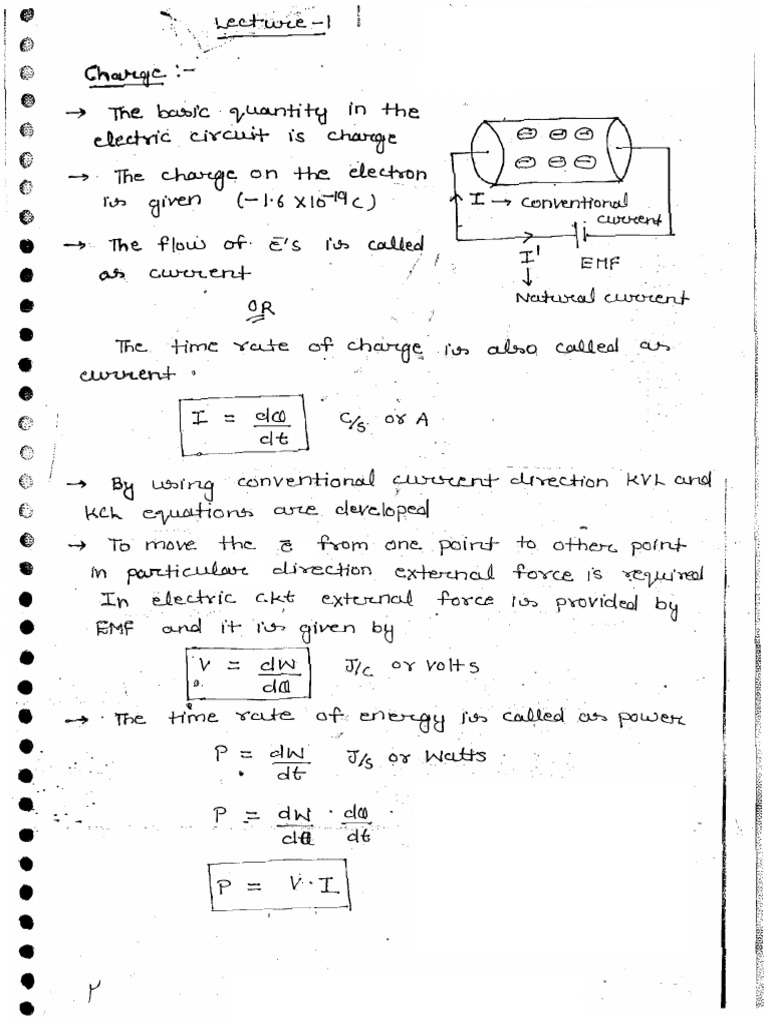 Lecture-1
Charge :-
→ The basic quantity in the
electric circuit is charge
→ The charge on the electron
is given (-1.6 X10⁻¹⁹C)
→ The flow of ē's is called
as current
OR
I → conventional
current
I'
EMF
↓
Natural current
The time rate of charge is also called as
current.
I = dQ/dt C/s or A
→ By using conventional current direction KVL and
KCL equations are developed
→ To move the ē from one point to other point
in particular direction external force is required
In electric ckt external force is provided by
EMF and it is given by
V = dW/dQ J/C or volts
→ The time rate of energy is called as power
P = dW/dt J/s or Watts
P = dW/dQ · dQ/dt
P = V·I